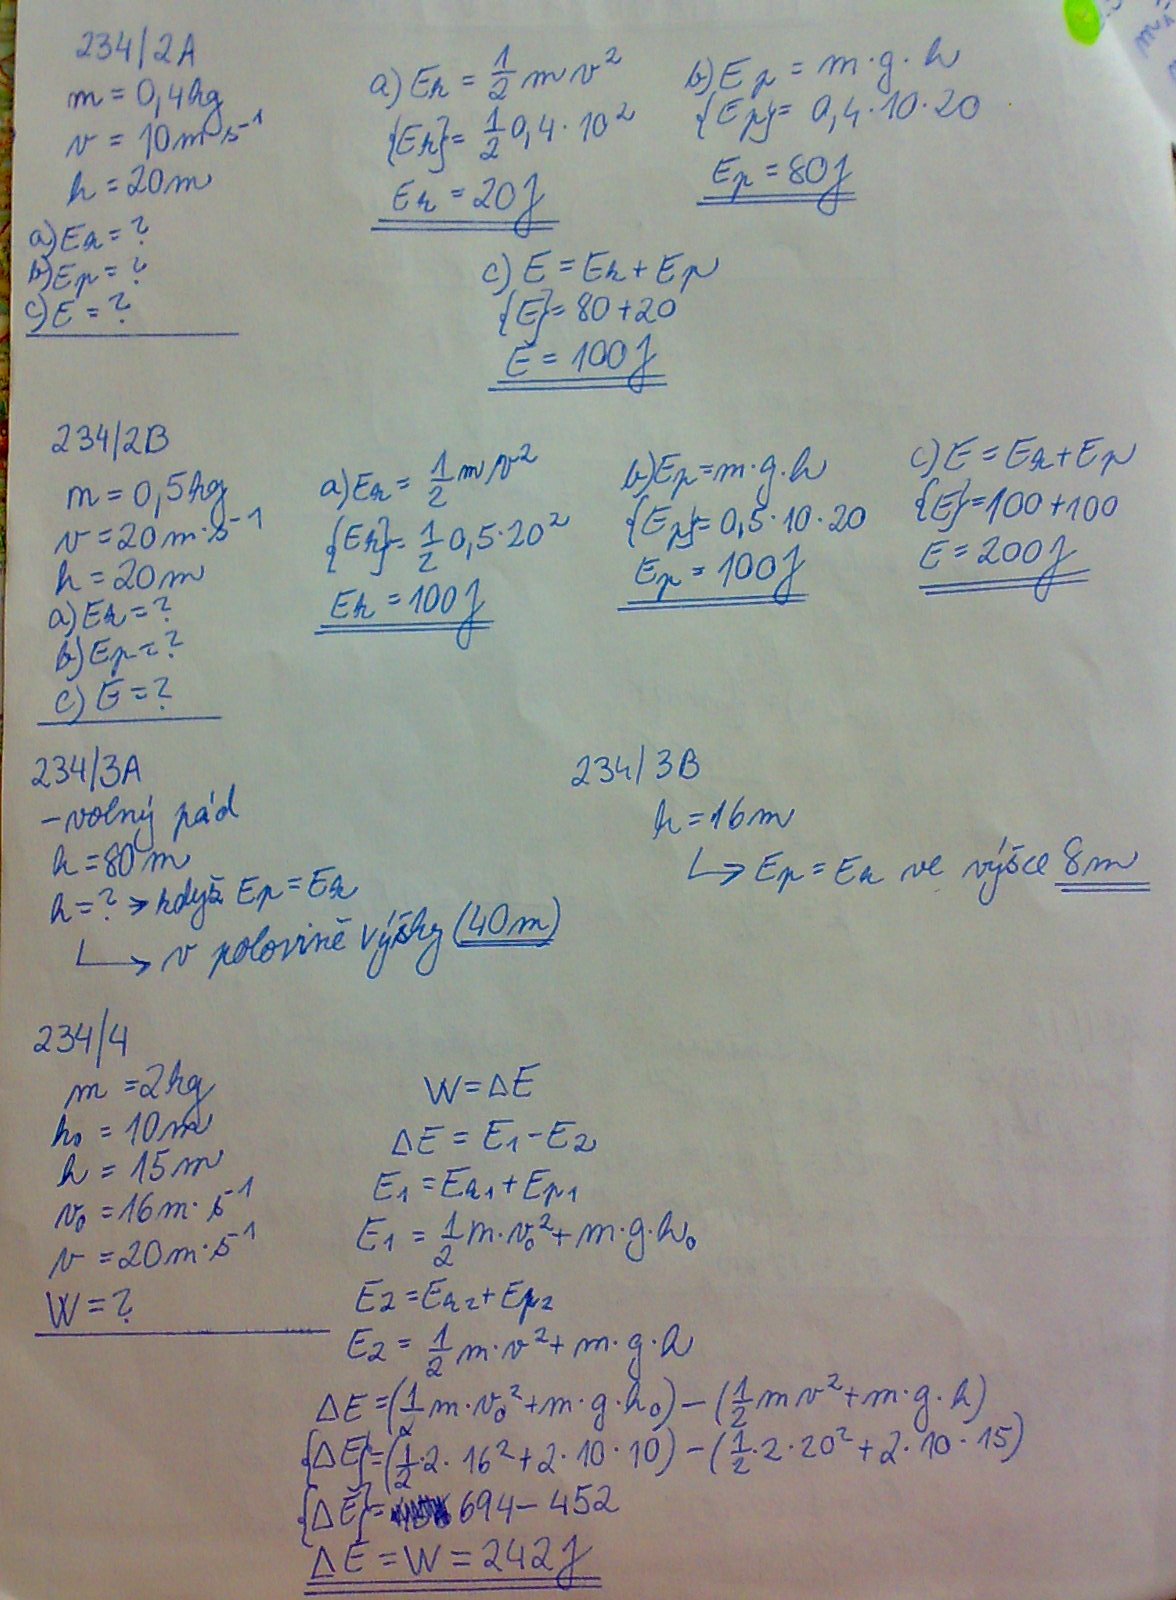 234/2A
m = 0,4kg
v = 10m·s⁻¹
h = 20m
a) Ek = ?
b) Ep = ?
c) E = ?
a) Ek = 1/2 m v²
{Ek} = 1/2 0,4 · 10²
Ek = 20J
b) Ep = m · g · h
{Ep} = 0,4 · 10 · 20
Ep = 80J
c) E = Ek + Ep
{E} = 80 + 20
E = 100J
234/2B
m = 0,5kg
v = 20m·s⁻¹
h = 20m
a) Ek = ?
b) Ep = ?
c) E = ?
a) Ek = 1/2 m v²
{Ek} = 1/2 0,5 · 20²
Ek = 100J
b) Ep = m · g · h
{Ep} = 0,5 · 10 · 20
Ep = 100J
c) E = Ek + Ep
{E} = 100 + 100
E = 200J
234/3A
- volný pád
h = 80m
h = ? → když Ep = Ek
↳ v polovině výšky (40m)
234/3B
h = 16m
↳ Ep = Ek ve výšce 8m
234/4
m = 2kg
h₀ = 10m
h = 15m
v₀ = 16m·s⁻¹
v = 20m·s⁻¹
W = ?
W = ΔE
ΔE = E₁ - E₂
E₁ = Ek₁ + Ep₁
E₁ = 1/2 m · v₀² + m · g · h₀
E₂ = Ek₂ + Ep₂
E₂ = 1/2 m · v² + m · g · h
ΔE = (1/2 m · v₀² + m · g · h₀) - (1/2 m v² + m · g · h)
{ΔE} = (1/2 · 2 · 16² + 2 · 10 · 10) - (1/2 · 2 · 20² + 2 · 10 · 15)
{ΔE} = 694 - 452
ΔE = W = 242J